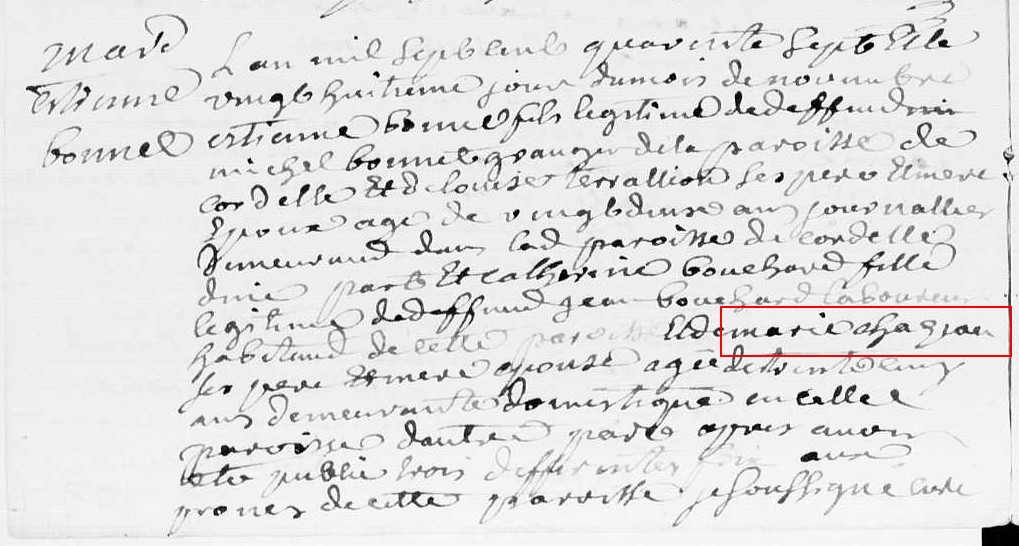 mard
estienne
bonnel
L an mil septcent quarente sept Et le
vingthuitieme jour dumois de novembre
estienne bonnel fils legitime dedeffund
michel bonnel granger dela paroisse de
cordelle Et de louise terrallion ses pere Etmere
Epoux age de vingt ans journallier
Demeurand dans lad paroisse de cordelle
dune part Et catherine bouchard fille
legitime dedeffund jean bouchard laboureur
habitand de cette paroisse Et de marie chagran
ses pere Et mere epouse agée de trente cinq
ans demeurante domestique en cette
paroisse dautre part apres avoir
ete publié trois differentes fois aux
prones de cette paroisse je soussigné curé